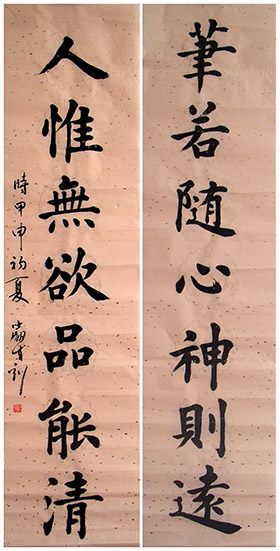 筆若随心神則遠
人惟無欲品能清
時甲申初夏